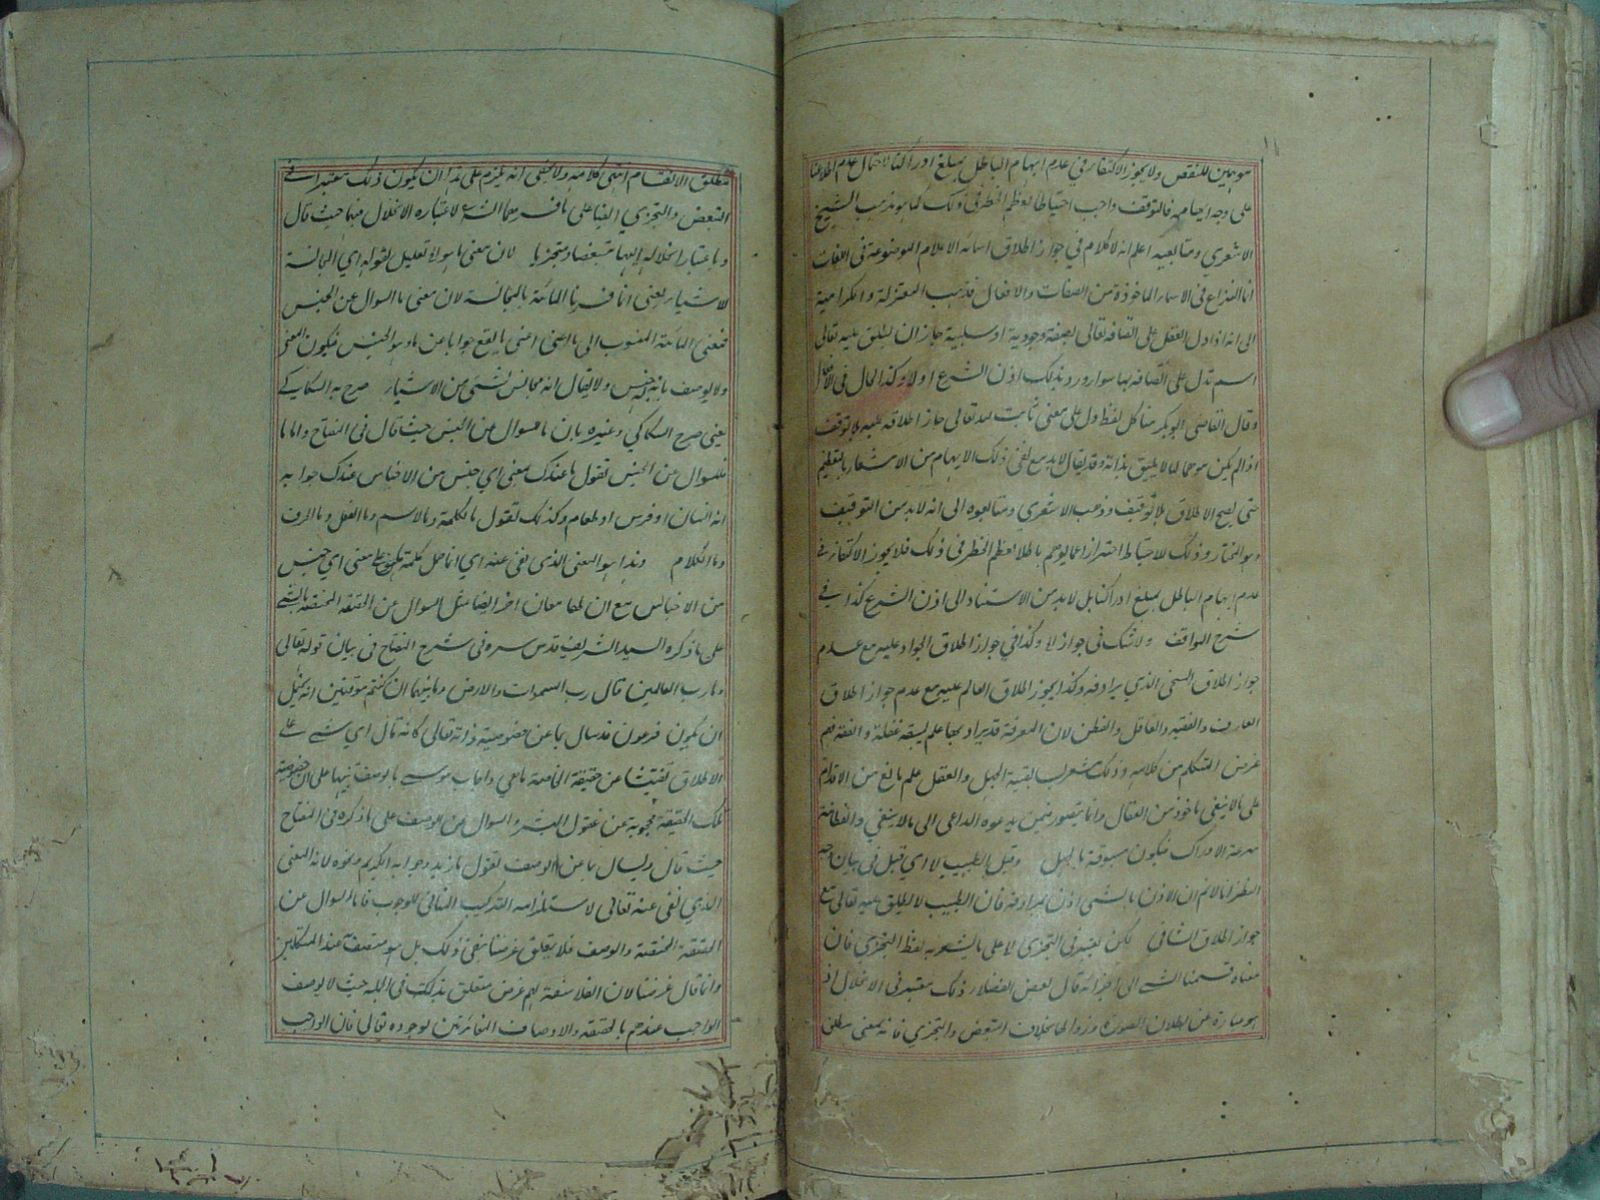 موهمين للنقص ولا يجوز الاكتفاء في عدم ايهام الباطل بمبلغ ادراكنا لاحتمال عدم اطلاعنا
على وجه ايهامه فالتوقف واجب احتياطا لعظم الخطر في ذلك كما هو مذهب الشيخ
الاشعري ومتابعيه اعلم انه لا كلام في جواز اطلاق اسمائه الاعلام الموضوعة في اللغات
انما النزاع في الاسماء الماخوذة من الصفات والافعال فذهب المعتزلة والكرامية
الى انه اذا دل العقل على اتصافه تعالى بصفة وجودية او سلبية جاز ان يطلق عليه تعالى
اسم تدل على اتصافه بها سواء ورد بذلك اذن الشرع او لا وكذا الحال في الافعال
وقال القاضي ابو بكر منا كل لفظ دل على معنى ثابت لله تعالى جاز اطلاقه عليه بلا توقيف
اذا لم يكن موهما لما لا يليق بذاته وقد يقال لا بد مع نفي ذلك الايهام من الاشعار بالتعظيم
حتى يصح الاطلاق بلا توقيف وذهب الاشعري ومتابعوه الى انه لا بد من التوقيف
وهو المختار وذلك للاحتياط احترازا عما يوهم باطلا لعظم الخطر في ذلك فلا يجوز الاكتفاء في
عدم ايهام الباطل بمبلغ ادراكنا بل لا بد من الاستناد الى اذن الشرع كذا في
شرح المواقف ولا شك في جواز لا وكذا في جواز اطلاق الجواد عليه مع عدم
جواز اطلاق السخي الذي يرادفه وكذا يجوز اطلاق العالم عليه مع عدم جواز اطلاق
العارف والفقيه والعاقل والفطن لان المعرفة قد يراد بها علم يسبقه غفلة والفقه فهم
غرض المتكلم من كلامه وذلك مشعر بسابقية الجهل والعقل علم مانع من الاقدام
على ما لا ينبغي ماخوذ من العقال وانما يتصور فيمن يدعوه الداعي الى ما لا ينبغي والفطانة
سرعة الادراك فيكون مسبوقة بالجهل وقيل الطبيب لا اي قيل في بيان وجه
النظر انا لا نم ان الاذن بالشيء اذن بمرادفه فان الطبيب لا يطلق عليه تعالى مع
جواز اطلاق الشافي لكن يعتبر في التجزي لا على ما يشعر به لفظ التجزي فان
معناه قسمنا الشيء الى اجزائه قال بعض الفضلاء ذلك معتبر في الانحلال اذ
هو عبارة عن بطلان الصورة وزوالها بخلاف التبعض والتجزي فانه بمعنى مطلق
مطلق الانقسام انتهى كلامه ولا يخفى انه يلزم على هذا ان يكون ذلك معتبرا في
التبعض والتجزي ايضا على ما فسرهما الشرح لاعتباره الانحلال فيهما حيث قال
وباعتبار انحلاله اليها متبعضا ومتجزيا لان معنى ما هو لا تعليل لقوله اي المجانسة
للاشياء يعني انا فسرنا المائية بالمجانسة لان معنى ما السوال عن الجنس
فمعنى المائية المنسوب الى ما اعني ما يقع جوابا عن ما هو الجنس فيكون المعنى
ولا يوصف بانه جنس ولا يقال انه مجانس لشيء من الاشياء صرح به السكاكي
يعني صرح السكاكي وغيره بان ما سوال عن الجنس حيث قال في المفتاح واما ما
فللسوال عن الجنس تقول ما عندك بمعنى اي جنس من الاجناس عندك جوابه
انه انسان او فرس او طعام وكذلك تقول ما الكلمة وما الاسم وما الفعل وما الحرف
وما الكلام وهذا هو المعنى الذي نفى عنه اي انما حمل كلمة ما على معنى اي جنس
من الاجناس مع ان لها معان اخر ايضا مثل السوال عن الحقيقة المختصة بالشيء
على ما ذكره السيد الشريف قدس سره في شرح المفتاح في بيان قوله تعالى
وما رب العالمين قال رب السموات والارض وما بينهما ان كنتم موقنين انه يحتمل
ان يكون فرعون قد سال بما عن خصوصية ذاته تعالى كانه قال اي شيء على
الاطلاق تفتيشا عن حقيقة الخاصة ما هي واجاب موسى بالوصف تنبيها على ان خصوصية
تلك الحقيقة محجوبة عن عقول البشر والسوال عن الوصف على ما ذكره في المفتاح
حيث قال ويسال بما عن الوصف تقول ما زيد وجوابه الكريم ونحوه لانه المعنى
الذي نفى عنه تعالى لاستلزامه التركيب المنافي للوجوب فاما السوال عن
الحقيقة المختصة والوصف فلا يتعلق غرضنا بنفي ذلك بل هو متحقق عند المتكلمين
وانما قال غرضنا لان الفلاسفة لهم غرض متعلق بذلك في الجملة حيث لا يوصف
الواجب عندهم بالحقيقة والاوصاف المغايرتين لوجوده تعالى فان الواجب